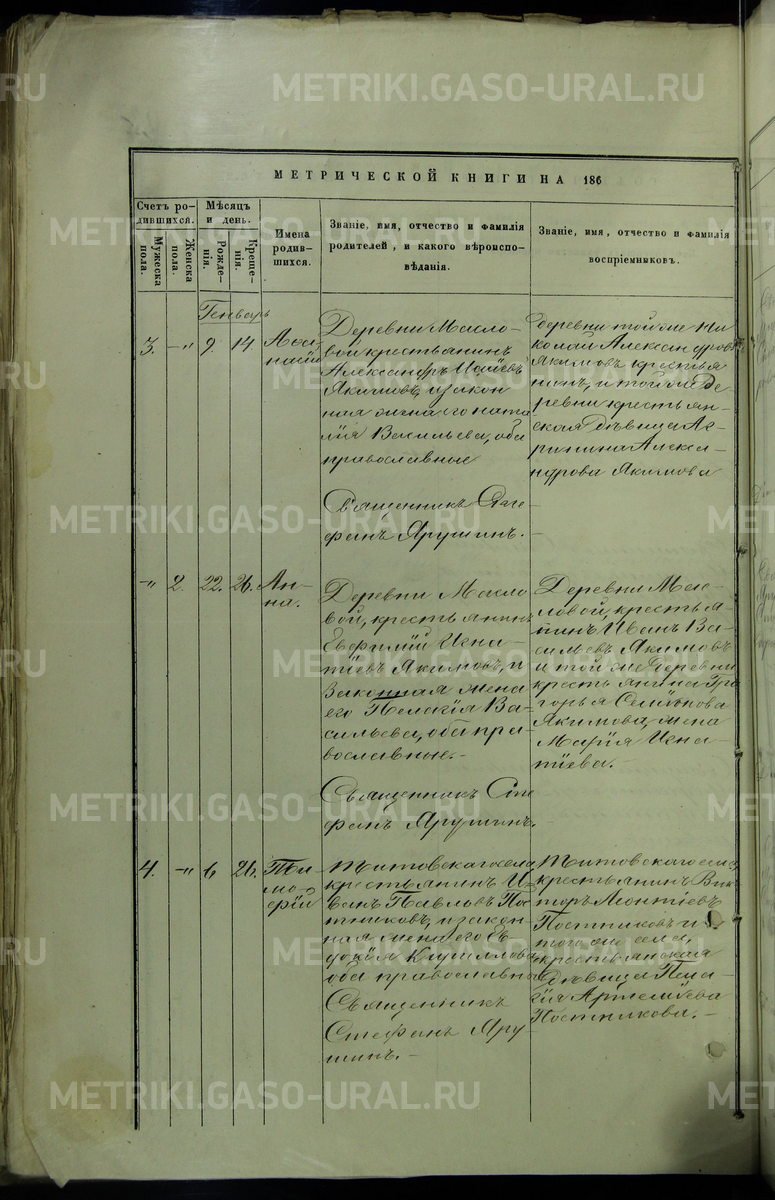 МЕТРИЧЕСКОЙ КНИГИ НА 186
Счетъ родившихся.
Мѣсяцъ и день.
Имена родившихся.
Званіе, имя, отчество и фамилія
родителей, и какого вѣроиспо-
вѣданія.
Званіе, имя, отчество и фамилія
воспріемниковъ.
Мужеска пола.
Женска пола.
Рожденія.
Крещенія.
Генварь
3. -" 9. 14
Деревни Масло-
вой крестьянинъ
Александръ
Якимовъ, и закон-
ная жена его Ната
лія Васильева, оба
православные
Священникъ Сте-
фанъ Ярушинъ.
деревни той же Ни
колай Александровъ
Якимовъ крестья
нинъ, и той же де
ревни крестьян-
ская дѣвица Аг-
рипина Алекса-
ндрова Якимова
-" 2. 22. 26. Ан-
на.
Деревни Масло
вой, крестьянинъ
Евфимій Игна-
тіевъ Якимовъ, и
законная жена
его Пелагія Ва-
сильева, оба пра-
вославные.-
Священникъ Сте
фанъ Ярушинъ.
Деревни Мас-
ловой, крестья-
нинъ Иванъ Ва-
сильевъ Якимовъ
и той же деревни
крестьянина Гри
горья Семёнова
Якимова, жена
Марія Игна-
тіева.-
4. -" 6 26. Ти-
мо-
фій
Титовскаго села
крестьянинъ И-
ванъ Павловъ Пос
тниковъ, и закон-
ная жена его Ев
докія Кирилова
оба православны
Священникъ
Стефанъ Яру
шинъ.-
Титовскаго села,
крестьянинъ Вик
торъ Леонтіевъ
Постниковъ и
того же села,
крестьянская
дѣвица Пела-
гія Артеміева
Постникова.-
METRIKI.GASO-URAL.RU